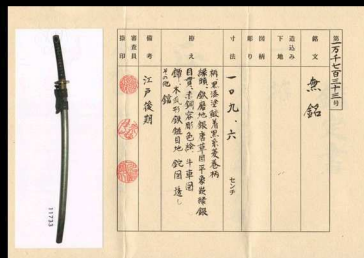 第一万千七百三十三号
銘文 無銘
造込み
下地
図柄
彫り
寸法 一〇九、六 センチ
拵え
柄黒漆塗鮫着黒糸菱巻柄
縁頭、鉄磨地銀唐草図平象嵌縁銀
目貫、赤銅容彫色絵、牛車図
鐔、木瓜形鉄鎚目地
その他
備考 江戸後期
審査員
印
11733